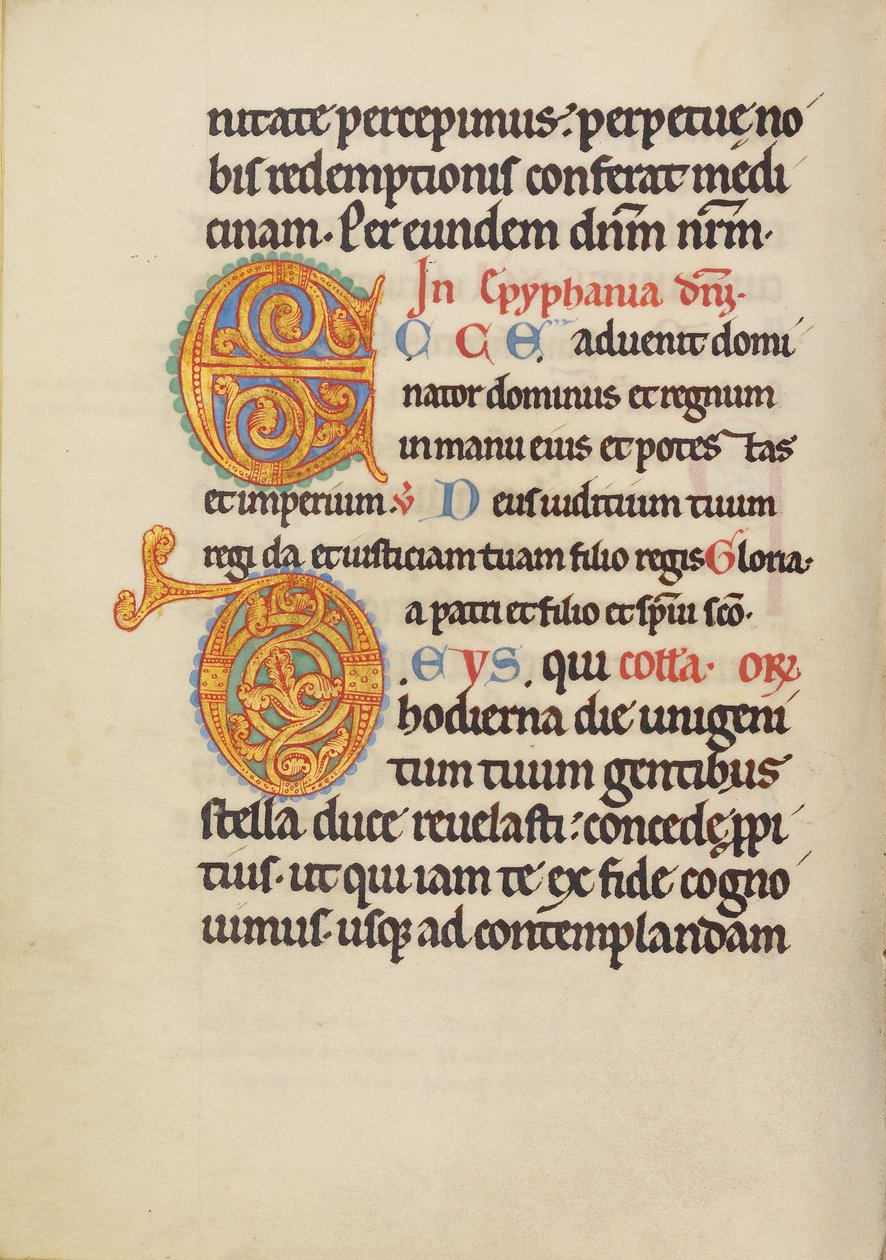 nitate percepimus: perpetuę no
bis redemptionis conferat medi
cinam. Per eundem dn̄m nr̄m.
In Epyphania dn̄i.
E C C E aduenit domi
nator dominus et regnum
in manu eius et potes tas
et imperium. V̄ Deus iuditium tuum
regi da et iusticiam tuam filio regis Gloria.
a patri et filio et sp̄iu sc̄o.
D EVS. qui coll̄a. or
hodierna die unigeni
tum tuum gentibus
stella duce reuelasti: concedę ꝓpi
tius. ut qui iam te ex fide cogno
uimus. usqꝫ ad contemplandam